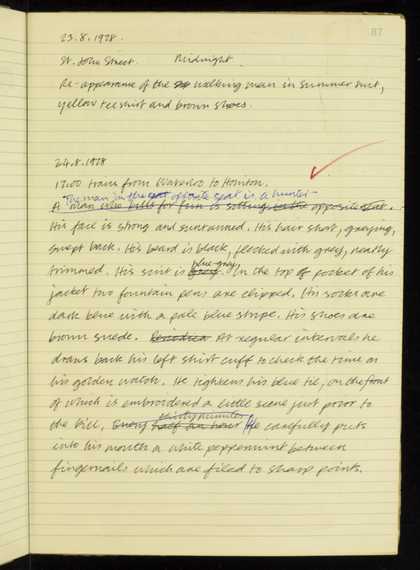 87
23.8.1978
St. John Street. Midnight.
Re-appearance of the walking man in summer suit,
yellow tee shirt and brown shoes.
24.8.1978
17.00 train from Waterloo to Honiton.
The man in the seat opposite seat is a hunter -
A man who kills for fun is sitting in the opposite seat.
His face is strong and suntanned. His hair short, greying,
swept back. His beard is black, flecked with grey, neatly
blue-grey
trimmed. His suit is grey. In the top of pocket of his
jacket two fountain pens are clipped. His socks are
dark blue with a pale blue stripe. His shoes are
brown suede. At regular intervals he
draws back his left shirt cuff to check the time on
his golden watch. He tightens his blue tie, on the front
of which is embroidered a little scene just prior to
thirty minutes
the kill, Every half an hour He carefully puts
into his mouth a white peppermint between
fingernails which are filed to sharp points.